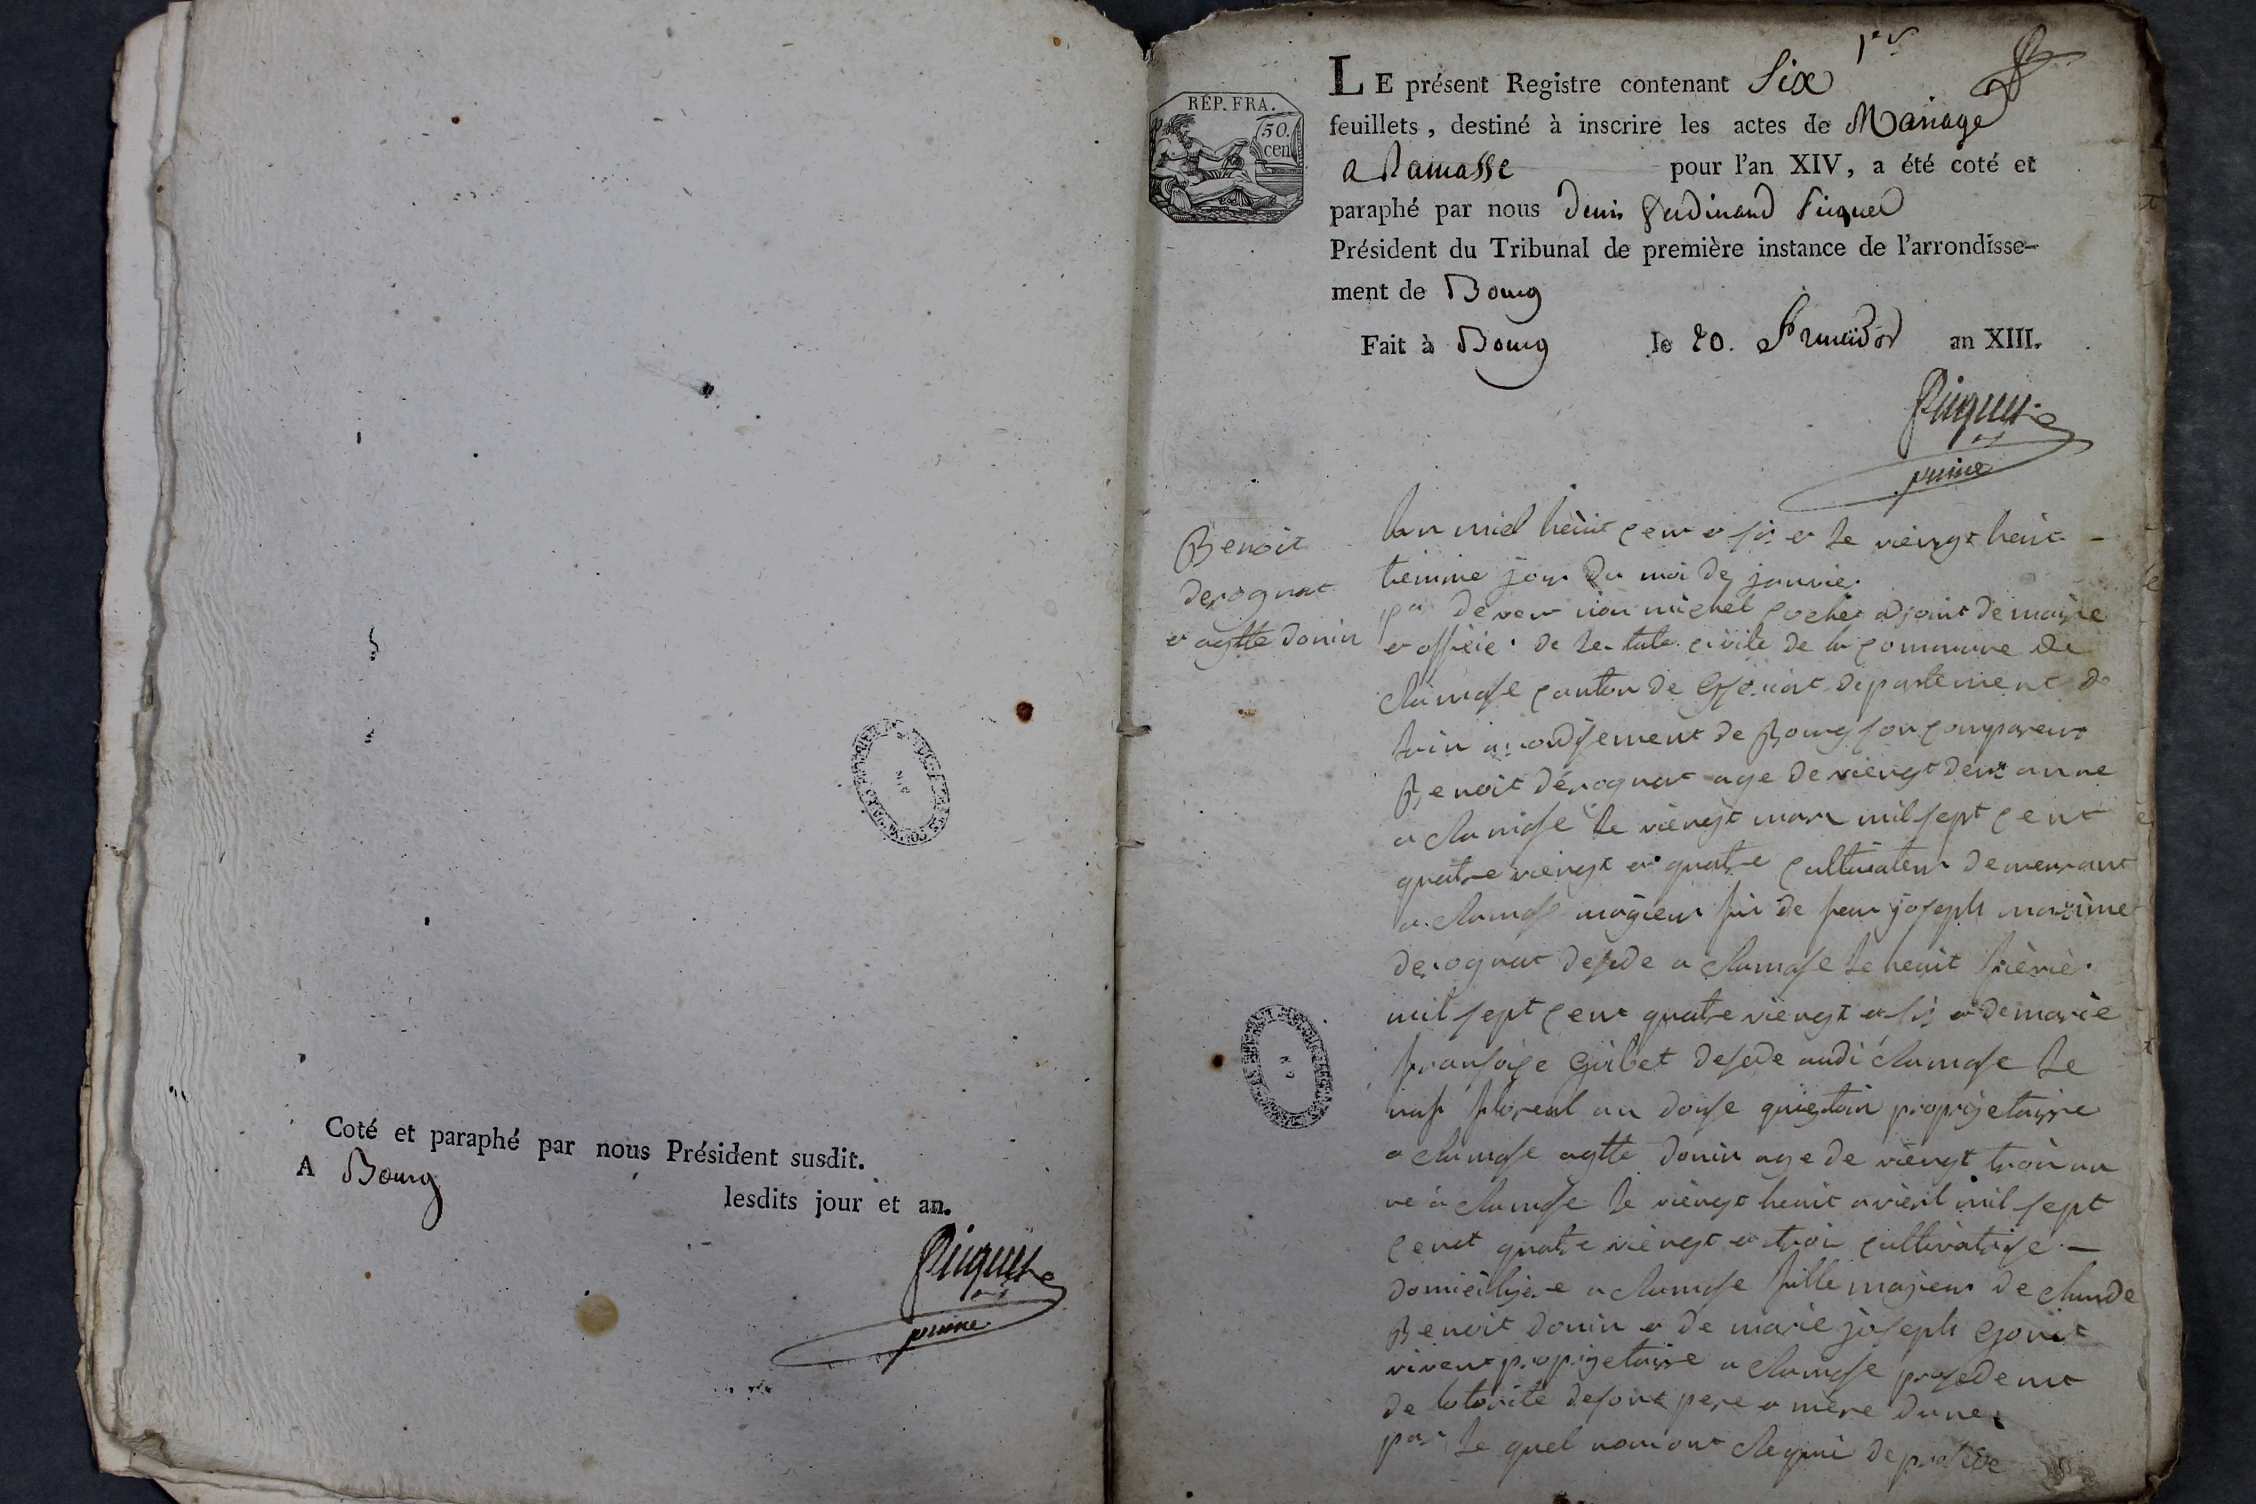 Coté et paraphé par nous Président susdit.
A Bourg
lesdits jour et an.
Picquet
1er
LE présent Registre contenant Six
feuillets, destiné à inscrire les actes de Mariage
a Ramasse pour l'an XIV, a été coté et
paraphé par nous Denis ferdinand Picquet
Président du Tribunal de première instance de l'arrondisse-
ment de Bourg
Fait à Bourg le 20. fructidor an XIII.
Picquet
RÉP. FRA.
50.
cen
Benoit
derognat
et agtte donin
lan miel heuit cent et sis et le viengt heuit
tiemme jour du moi de janvier
par deven nou michel cochet adjoint de maire
et offiecie de le tat civile de la commune de
Ramasse canton de departement de
lain arondisement de Bourg son comparent
Benoit dérognat age de viengt deux an ne
a Ramase le viengt mars mil sept cent
quatre viengt et quatre cultivateur demeurant
a Ramase majeur fis de feu joseph marie
derognat desede a Ramase le heuit
mil sept cent quatre viengt et sis et de marie
fransoise desede audi Ramase le
nuf floreal an douse propriietaire
a Ramase agtte donin age de viengt troi an
ne a Ramase le viengt heuit avieril mil sept
cent quatre viengt et troi cultivatrise
domiciliere a Ramase fille majeur de claude
Benoit donin et de marie joseph
vivent proprietaire a Ramase prosedent
de lotorite desont pere et mere dune
part le quel nom ont requi de